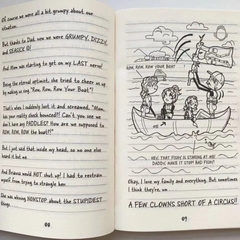 Of course we were all a bit grumpy about our
situation.
But thanks to Dad now we were GRUMPY, DIZZY,
and SEASICK 0!
And Mom was starting to get on my LAST nerve!
Being the eternal optimist, she tried to cheer us up
by making us sing "Row, Row, Row Your Boat"!
That's when I suddenly lost it and screamed, "Mom,
has your reality check bounced?! Can't you see we
don't have any PADDLES?! How are we supposed to
ROW, ROW, ROW the boat?!!"
But I just said that inside my head, so no one else
heard it but me.
And Brianna would NOT shut up! I had to restrain
myself from trying to strangle her.
She was asking NONSTOP about the STUPIDEST
things . . .
ROW, ROW, ROW YOUR BOAT
HEY, THAT FISH IS STARING AT ME!
DADDY MAKE IT STOP! BAD FISH!
Okay, I love my family and everything. But sometimes
I think they're, um . . .
A FEW CLOWNS SHORT OF A CIRCUS!!